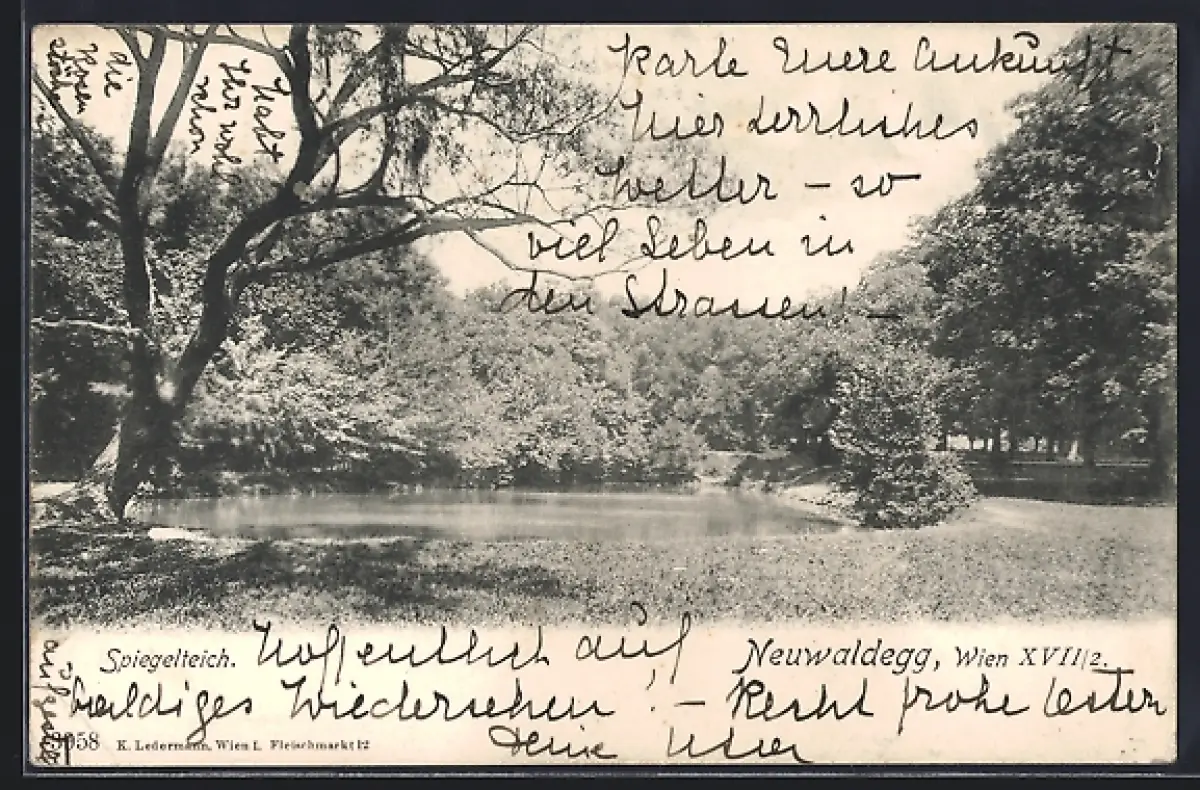 Karte Euere Ankunft
hier herrliches
Wetter – so
viel Leben in
den Strassen! –
Habt
Ihr wohl
schon
die
aufgesetzt
Spiegelteich.
Hoffentlich auf
Neuwaldegg, Wien XVII/2.
baldiges Wiedersehen! – Recht frohe Ostern
K. Ledermann, Wien I. Fleischmarkt 12
Deine